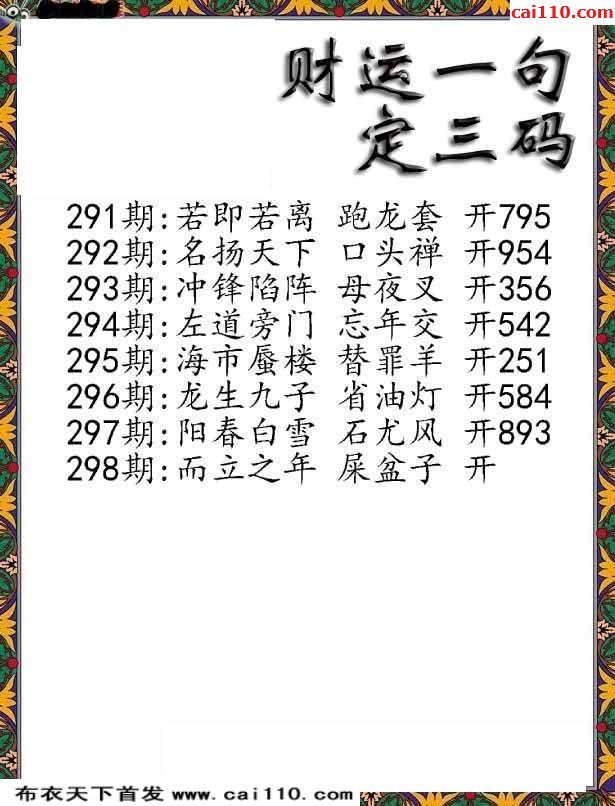 cai110.com
财运一句
定三码
291期:若即若离 跑龙套 开795
292期:名扬天下 口头禅 开954
293期:冲锋陷阵 母夜叉 开356
294期:左道旁门 忘年交 开542
295期:海市蜃楼 替罪羊 开251
296期:龙生九子 省油灯 开584
297期:阳春白雪 石尤风 开893
298期:而立之年 屎盆子 开
布衣天下首发 www.cai110.com